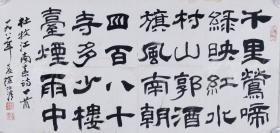 千里鶯啼
綠映紅水
村山郭酒
旗風南朝
四百八十
寺多少樓
臺煙雨中
杜牧江南春詩
一九八年